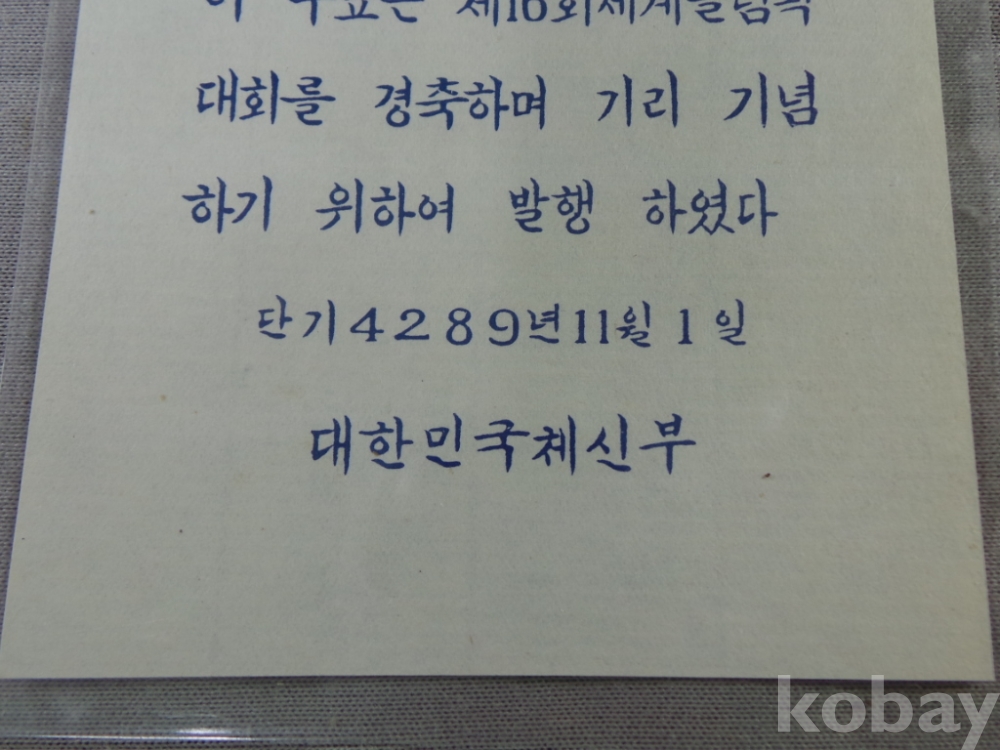 이 우표는 제16회세계올림픽
대회를 경축하며 기리 기념
하기 위하여 발행 하였다
단기4289년11월 1 일
대한민국체신부
kobay